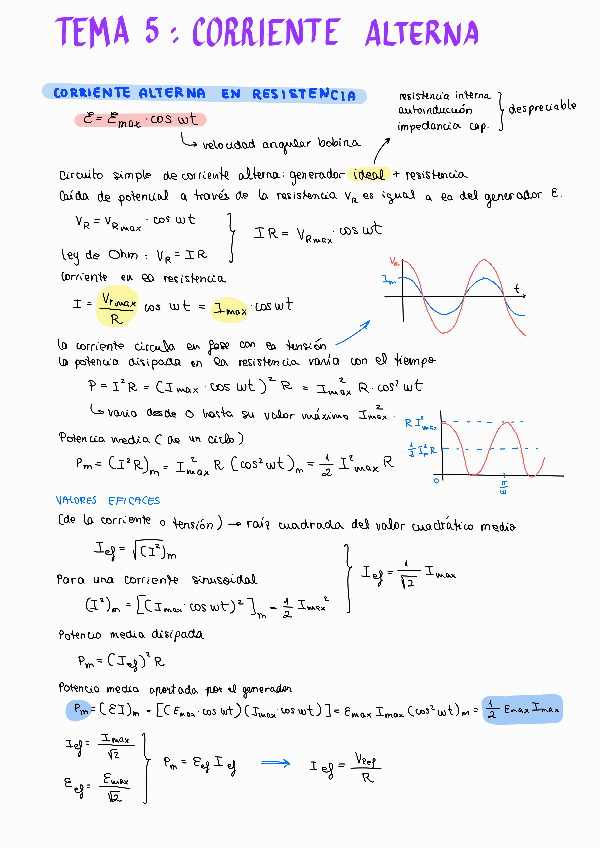 TEMA 5: CORRIENTE ALTERNA
CORRIENTE ALTERNA EN RESISTENCIA
resistencia interna
autoinducción
impedancia cap.
despreciable
Ɛ = Ɛmax · cos ωt
↳ velocidad angular bobina
Circuito simple de corriente alterna: generador ideal + resistencia
Caída de potencial a través de la resistencia VR es igual a la del generador Ɛ.
VR = VRmax · cos ωt
IR = VRmax · cos ωt
Ley de Ohm: VR = IR
Corriente en la resistencia
I = VRmax/R cos ωt = Imax · cos ωt
VR
Im
t
La corriente circula en fase con la tensión
La potencia disipada en la resistencia varía con el tiempo
P = I²R = (Imax · cos ωt)² R = I²max R · cos² ωt
↳ varía desde 0 hasta su valor máximo I²max ·
R I²max
1/2 I²m R
0
π/ω
Potencia media (de un ciclo)
Pm = (I²R)m = I²max R (cos² ωt)m = 1/2 I²max R
VALORES EFICACES
(de la corriente o tensión) → raíz cuadrada del valor cuadrático medio
Ief = √(I²)m
Ief = 1/√2 Imax
Para una corriente sinusoidal
(I²)m = [(Imax · cos ωt)²]m = 1/2 Imax²
Potencia media disipada
Pm = (Ief)² R
Potencia media aportada por el generador
Pm = (ƐI)m = [(Ɛmax · cos ωt)(Imax · cos ωt)] = Ɛmax Imax (cos² ωt)m = 1/2 Ɛmax Imax
Ief = Imax/√2
Ɛef = Ɛmax/√2
Pm = Ɛef Ief → Ief = VRef/R